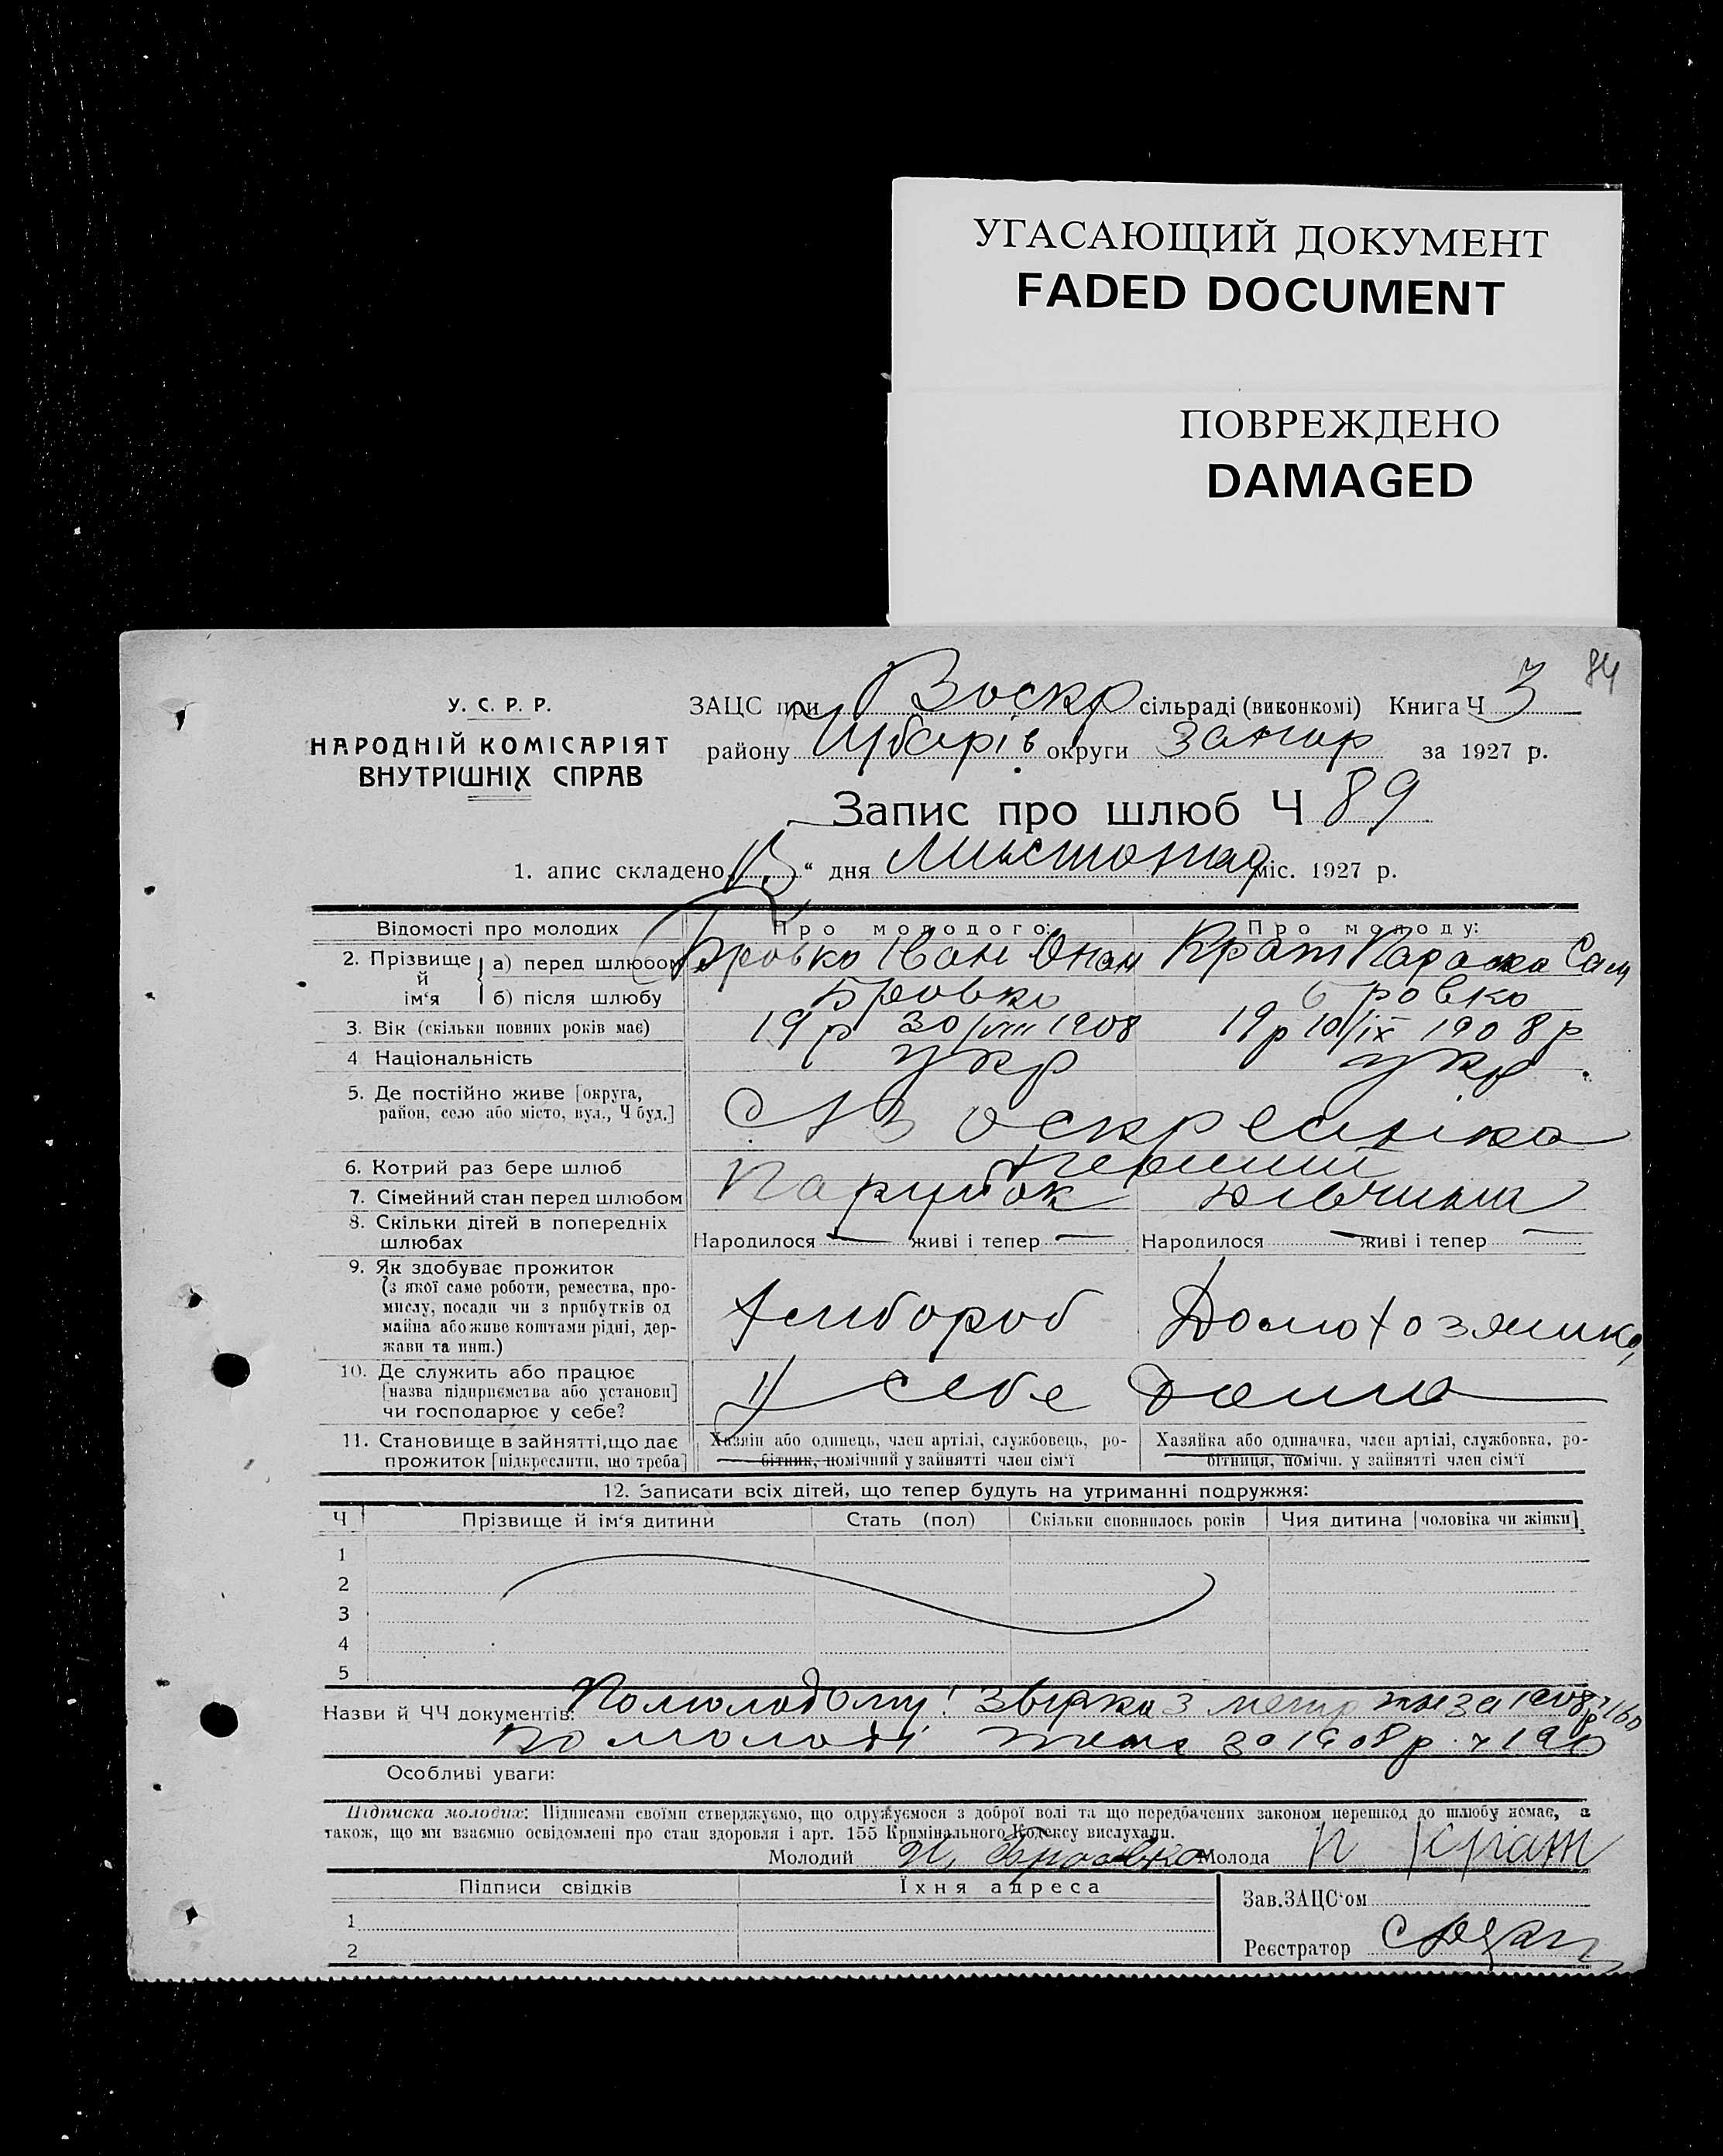 УГАСАЮЩИЙ ДОКУМЕНТ
FADED DOCUMENT
ПОВРЕЖДЕНО
DAMAGED
84
У. С. Р. Р.
НАРОДНІЙ КОМІСАРІЯТ
ВНУТРІШНІХ СПРАВ
ЗАЦС при Воскр сільраді (виконкомі) Книга Ч 3
району округи Запор за 1927 р.
Запис про шлюб Ч 89
1. апис складено „ “ дня Листопад міс. 1927 р.
Відомості про молодих Про молодого: Про молоду:
2. Прізвище й ім‘я а) перед шлюбом Бровко Іван Опан Крат Параска Сам
б) після шлюбу Бровко Бровко
3. Вік (скільки повних років має) 19 р 30/VIII 1908 19 р 10/IX 1908 р
4 Національність укр укр
5. Де постійно живе [округа,
район, село або місто, вул., Ч буд.]
С Воскресінка
6. Котрий раз бере шлюб Первий
7. Сімейний стан перед шлюбом Парубок дівчина
8. Скільки дітей в попередніх
шлюбах
Народилося — живі і тепер — Народилося — живі і тепер —
9. Як здобуває прожиток
(з якої саме роботи, ремества, про-
мислу, посади чи з прибутків од
майна або живе коштами рідні, дер-
жави та инш.)
Хлибороб Домохозяйка
10. Де служить або працює
[назва підприємства або установи]
чи господарює у себе?
У себе дома
11. Становище в зайнятті, що дає
прожиток [підкреслити, що треба]
Хазяїн або одинець, член артілі, службовець, ро-
бітник, помічний у зайнятті член сім‘ї
Хазяйка або одиначка, член артілі, службовка, ро-
бітниця, помічн. у зайнятті член сім‘ї
12. Записати всіх дітей, що тепер будуть на утриманні подружжя:
Ч Прізвище й ім‘я дитини Стать (пол) Скільки сповнилось років Чия дитина [чоловіка чи жінки]
1
2
3
4
5
Назви й ЧЧ документів: По молодому: з за 1908 р
По молоді за 1908 р
Особливі уваги:
Підписка молодих: Підписами своїми стверджуємо, що одружуємося з доброї волі та що передбачених законом перешкод до шлюбу немає, а
також, що ми взаємно освідомлені про стан здоровля і арт. 155 Кримінального Кодексу вислухали.
Молодий И. Бровко Молода П Крат
Підписи свідків Їхня адреса
1
2
Зав. ЗАЦС‘ом
Реєстратор